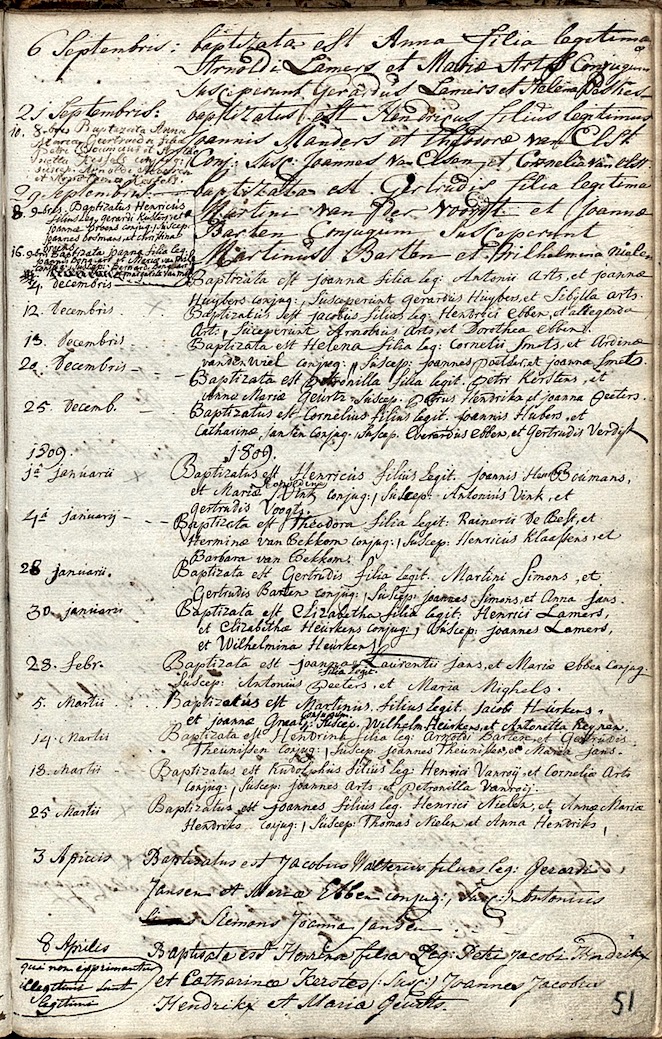 6 Septembris: baptizata est Anna filia legitima
Arnoldi Lamers et Mariæ Arts Conjugum
Susceperunt Gerardus Lamers et Helena
21 Septembris: baptizatus est Hendricus filius legitimus
Joannis Manders et Theodoræ van Elst
Conj: Susc: Joannes van Elsen et Cornelia van Elst
10. 8bris Baptizata Anna
29 Septembris baptizata est Gertrudis filia legitima
Martini van der Voordt et Joannæ
Barten Conjugum Susceperunt
Martinus Barten et Wilhelmina Nielen
8. 9bris Baptizatus Henricus
filius leg. Gerardi
Joannæ conjug: suscep:
Joannes
16. 9bris Baptizata Joanna filia leg.
4. decembris Baptizata est Joanna filia leg: Antonii Arts, et Joannæ
Huybers conjug: , Susceperunt Gerardus Huybers, et Sibilla Arts.
12. Decembris Baptizatus est Jacobus filius leg: Henrici Ebben, et Allegondæ
Art: , Suceperunt Arnoldus Arts, et Dorothea Ebben.
13. decembris Baptizata est Helena filia leg: Cornelii Smets, et Ardinæ
vanden Wiel conjug: , Suscep: Joannes et Joanna Smets
20. Decembris - - - Baptizata est Petronilla filia legit. Petri Kerstens, et
Annæ Mariæ Geurtz, Suscep: Petrus Hendrikx et Joanna Peeters.
25. Decemb. - - Baptizatus est Cornelius filius legit. Joannis Hubers, et
Catharinæ Jansen conjug: Suscep. Everardus Ebben, et Gertrudis
1809. 1809.
1a Januarii Baptizatus est Henricus filius legit. Joannis Boumans,
et Mariæ Vink conjug: , Suscep: Antonius Vink, et
Gertrudis Voogts.
4a Januarij - - - Baptizata est Theodora filia legit: Rainerii De Best, et
Herminæ van Bekkom conjug: , Suscep: Henricus Klaassens, et
Barbara van Bekkom.
28 Januarii. Baptizata est Gertrudis filia legit. Martini Simons, et
Gertrudis Barten conjug: , Suscep: Joannes Simons, et Anna Jans.
30 Januarii Baptizata est Elizabetha filia legit: Henrici Lamers,
et Elizabethæ Heurkens conjug: , Suscep: Joannes Lamers,
et Wilhelmina Heurkens
23. febr. Baptizata est Joanna filia legit. Laurentii Jans, et Mariæ Ebben conjug.
Suscep: Antonius Peeters, et Maria Mighels.
5. Martii - Baptizatus est Martinus, filius legit. Jacobi Hurkens,
et Joannæ conjugum, Suscep. Wilhelm: Heurkens, et Antonetta Reynen.
14. Martii Baptizata est Hendrina filia leg: Arnoldi Barten, et Gertrudis
Theunissen conjug: , Suscep. Joannes Theunissen, et Maria Jans.
18. Martii - Baptizatus est Rudolphus filius leg: Henrici Vanroij, et Corneliæ Arts
conjug: , Suscep: Joannes Arts, et Petronilla Vanroij.
25 Martii Baptizatus est Joannes filius leg. Henrici Nielen, et Annæ Mariæ
Hendriks conjug: , Suscep: Thomas Nielen et Anna Hendriks,
3 Aprilis Baptizatus est Jacobus Walterus filius leg: Gerardi
Jansen et Mariæ Ebben conjug: Susc: Antonius
Siemons Joanna Jansen
8 Aprilis Baptizata est Henrina filia Leg. Petri Jacobi Hendrikx
et Catharinæ Kersten (: Susc:) Joannes Jacobus
Hendrikx et Maria Geurts.
qui non exprimantur
illegitimi sunt
legitimi
51